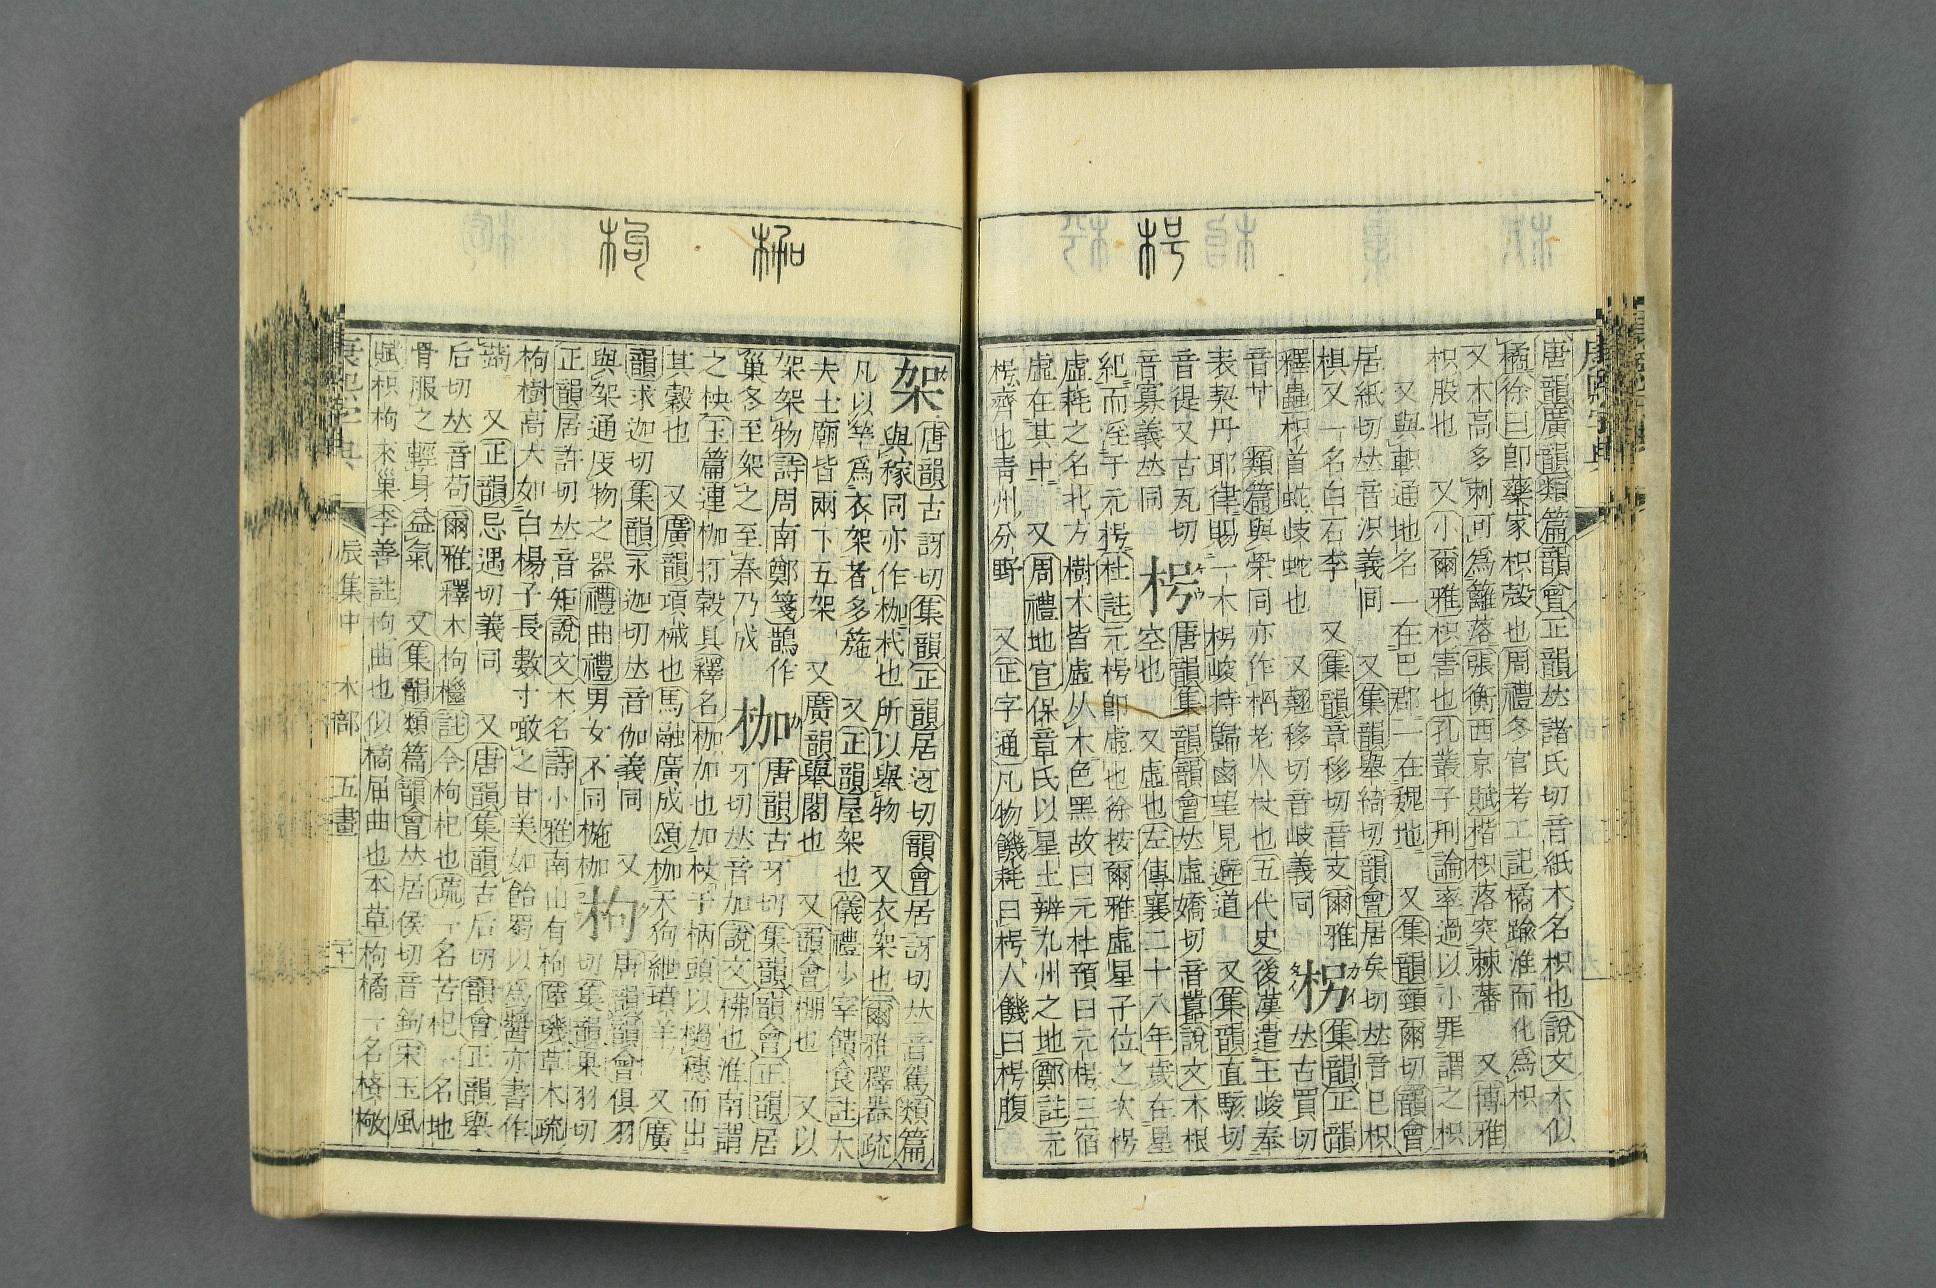 枴
唐韻廣韻類篇韻會正韻𠀤諸氏切音紙木名枳也說文木似
橘徐曰卽藥家枳殼也周禮冬官考工記橘踰淮而化爲枳
又木高多刺可爲籬落張衡西京賦楷枳落突棘藩 又博雅
枳股也 又小爾雅枳害也孔叢子刑論率過以小罪謂之枳
又與軹通地名一在巴郡一在魏地 又集韻頸爾切韻會
居紙切𠀤音𣲵義同 又集韻舉綺切韻會居矣切𠀤音已枳
椇又一名白石李 又集韻章移切音支爾雅
釋蟲枳首蛇歧蛇也 又翹移切音岐義同 枴 𠀤古買切
音𠁥 類篇與枴同亦作柺老人杖也五代史後漢遣王峻奉
表契丹耶律賜一木枴峻持歸鹵望見避道 又集韻直駭切
音徥又古瓦切
音寡義𠀤同 枵 唐韻集韻韻會𠀤虛嬌切音囂說文木根
空也 又虛也左傳襄二十八年歲在星
紀而淫于元枵杜註元枵卽虛也徐按爾雅虛星子位之次枵
虛耗之名北方樹木皆虛从木色黑故曰元杜預曰元枵三宿
虛在其中 又周禮地官保章氏以星土辨九州之地鄭註元
枵齊也靑州分野 又正字通凡物饑耗曰枵人饑曰枵腹
架 唐韻古訝切集韻正韻居迓切韻會居訝切𠀤音駕類篇
與稼同亦作枷杙也所以舉物 又衣架也爾雅釋器疏
凡以竿爲衣架者多簏 又正韻屋架也儀禮少宰饋食註大
夫士廟皆兩下五架 又廣韻舉閣也 又韻會棚也 又以
架架物詩周南鄭箋鵲作
巢冬至架之至春乃成 枷 唐韻古牙切集韻韻會正韻居
牙切𠀤音加說文柫也淮南謂
之柍玉篇連枷打穀具釋名枷加也加杖于柄頭以檛穗而出
其穀也 又廣韻項械也馬融廣成頌枷天狗紲墳羊 又廣
韻求迦切集韻永迦切𠀤音伽義同 又
與架通庋物之器禮曲禮男女不同椸枷 枸 唐韻韻會俱羽
切集韻果羽切
正韻居許切𠀤音矩說文木名詩小雅南山有枸陸璣草木疏
枸樹高大如白楊子長數寸噉之甘美如飴蜀以爲醬亦書作
蒟 又正韻忌遇切義同 又唐韻集韻古后切韻會正韻舉
后切𠀤音苟爾雅釋木枸檵註今枸杞也疏一名苦杞一名地
骨服之輕身益氣 又集韻類篇韻會𠀤居侯切音鉤宋玉風
賦枳枸來巢李善註枸曲也似橘屈曲也本草枸橘一名樍橵
康熙字典 辰集中 木部 五畫 二十